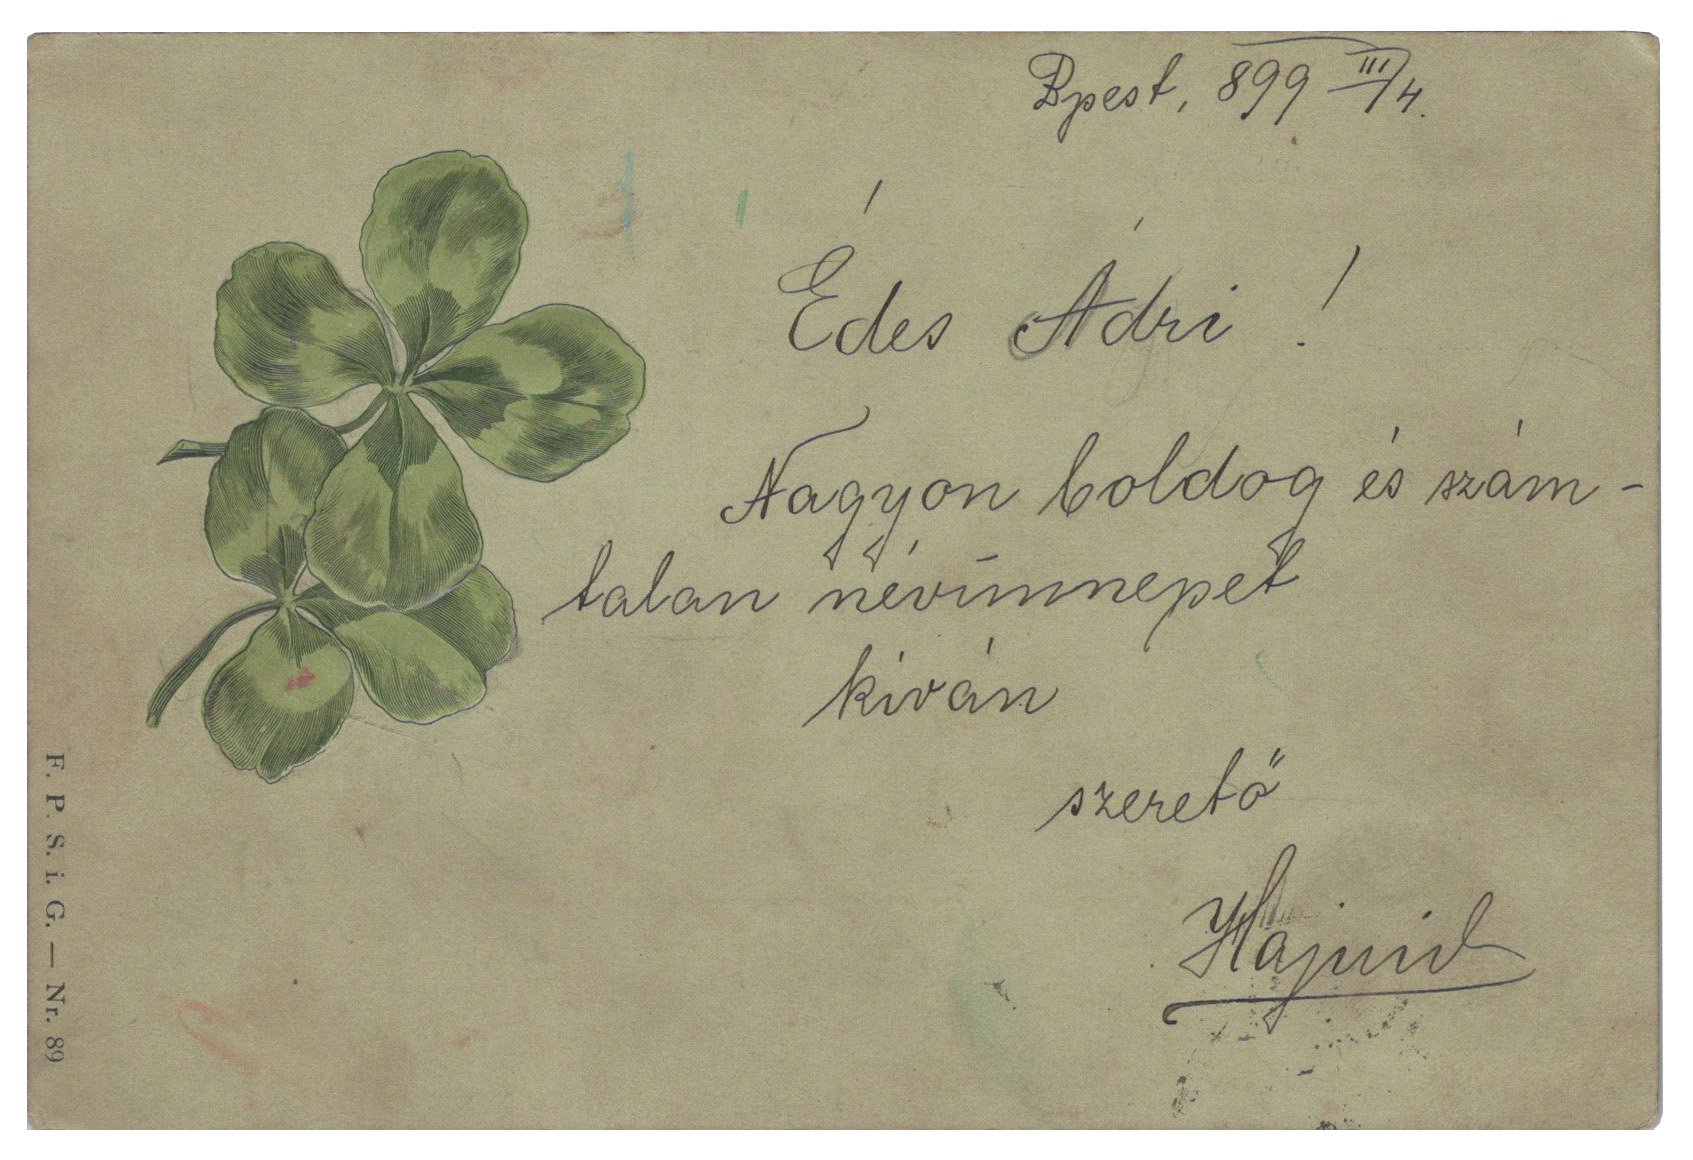 Bpest, 899 III/4.
Édes Ádri !
Nagyon boldog és szám-
talan névünnepet
kiván
szerető
F. P. S. i. G. — Nr. 89